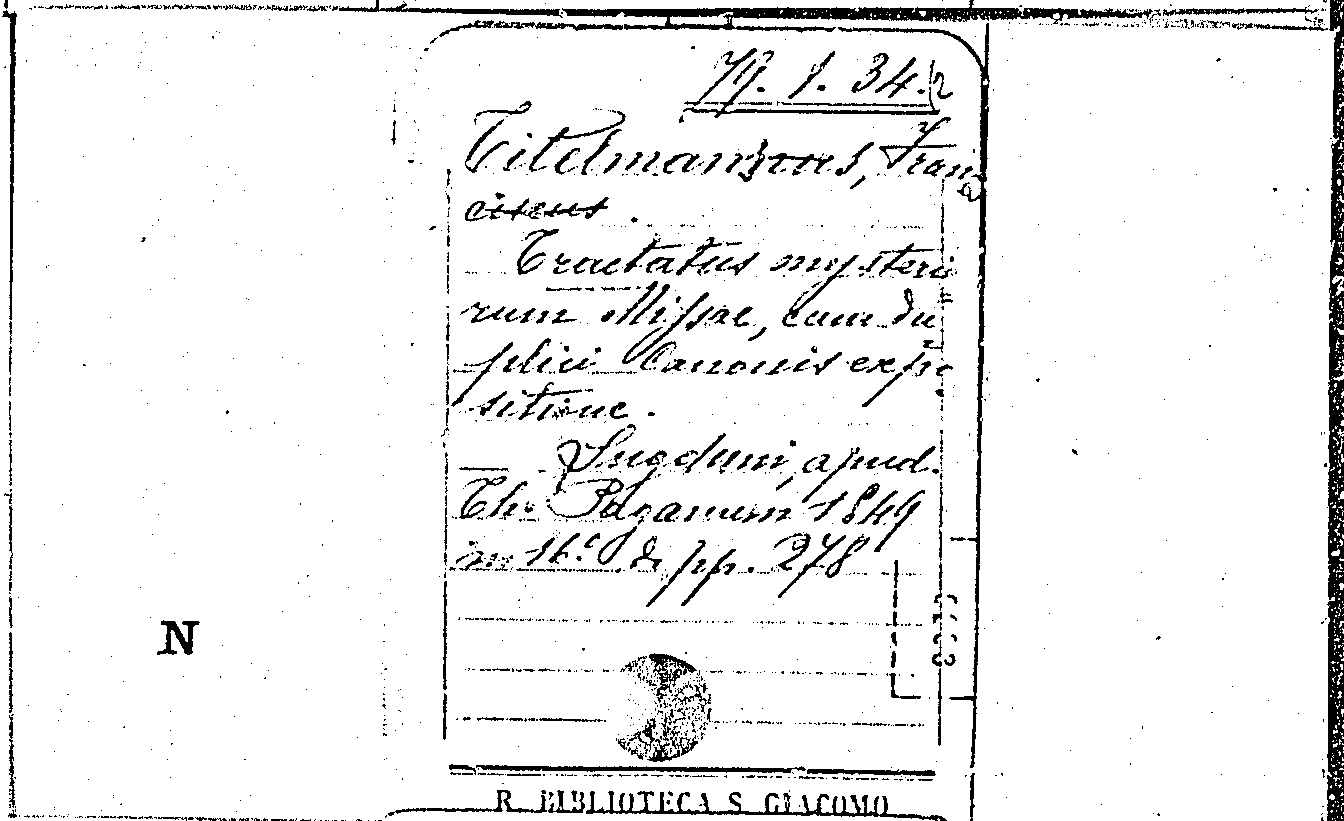 79. 8. 34.(2
Titelmannus, Fran
ciscus.
Tractatus mysterio
rum Missae, cum du
plici Canonis expo
sitione.
Lugduni, apud.
Th. Paganum 1849
in 16.° di pp. 278
N
R. BIBLIOTECA S. GIACOMO